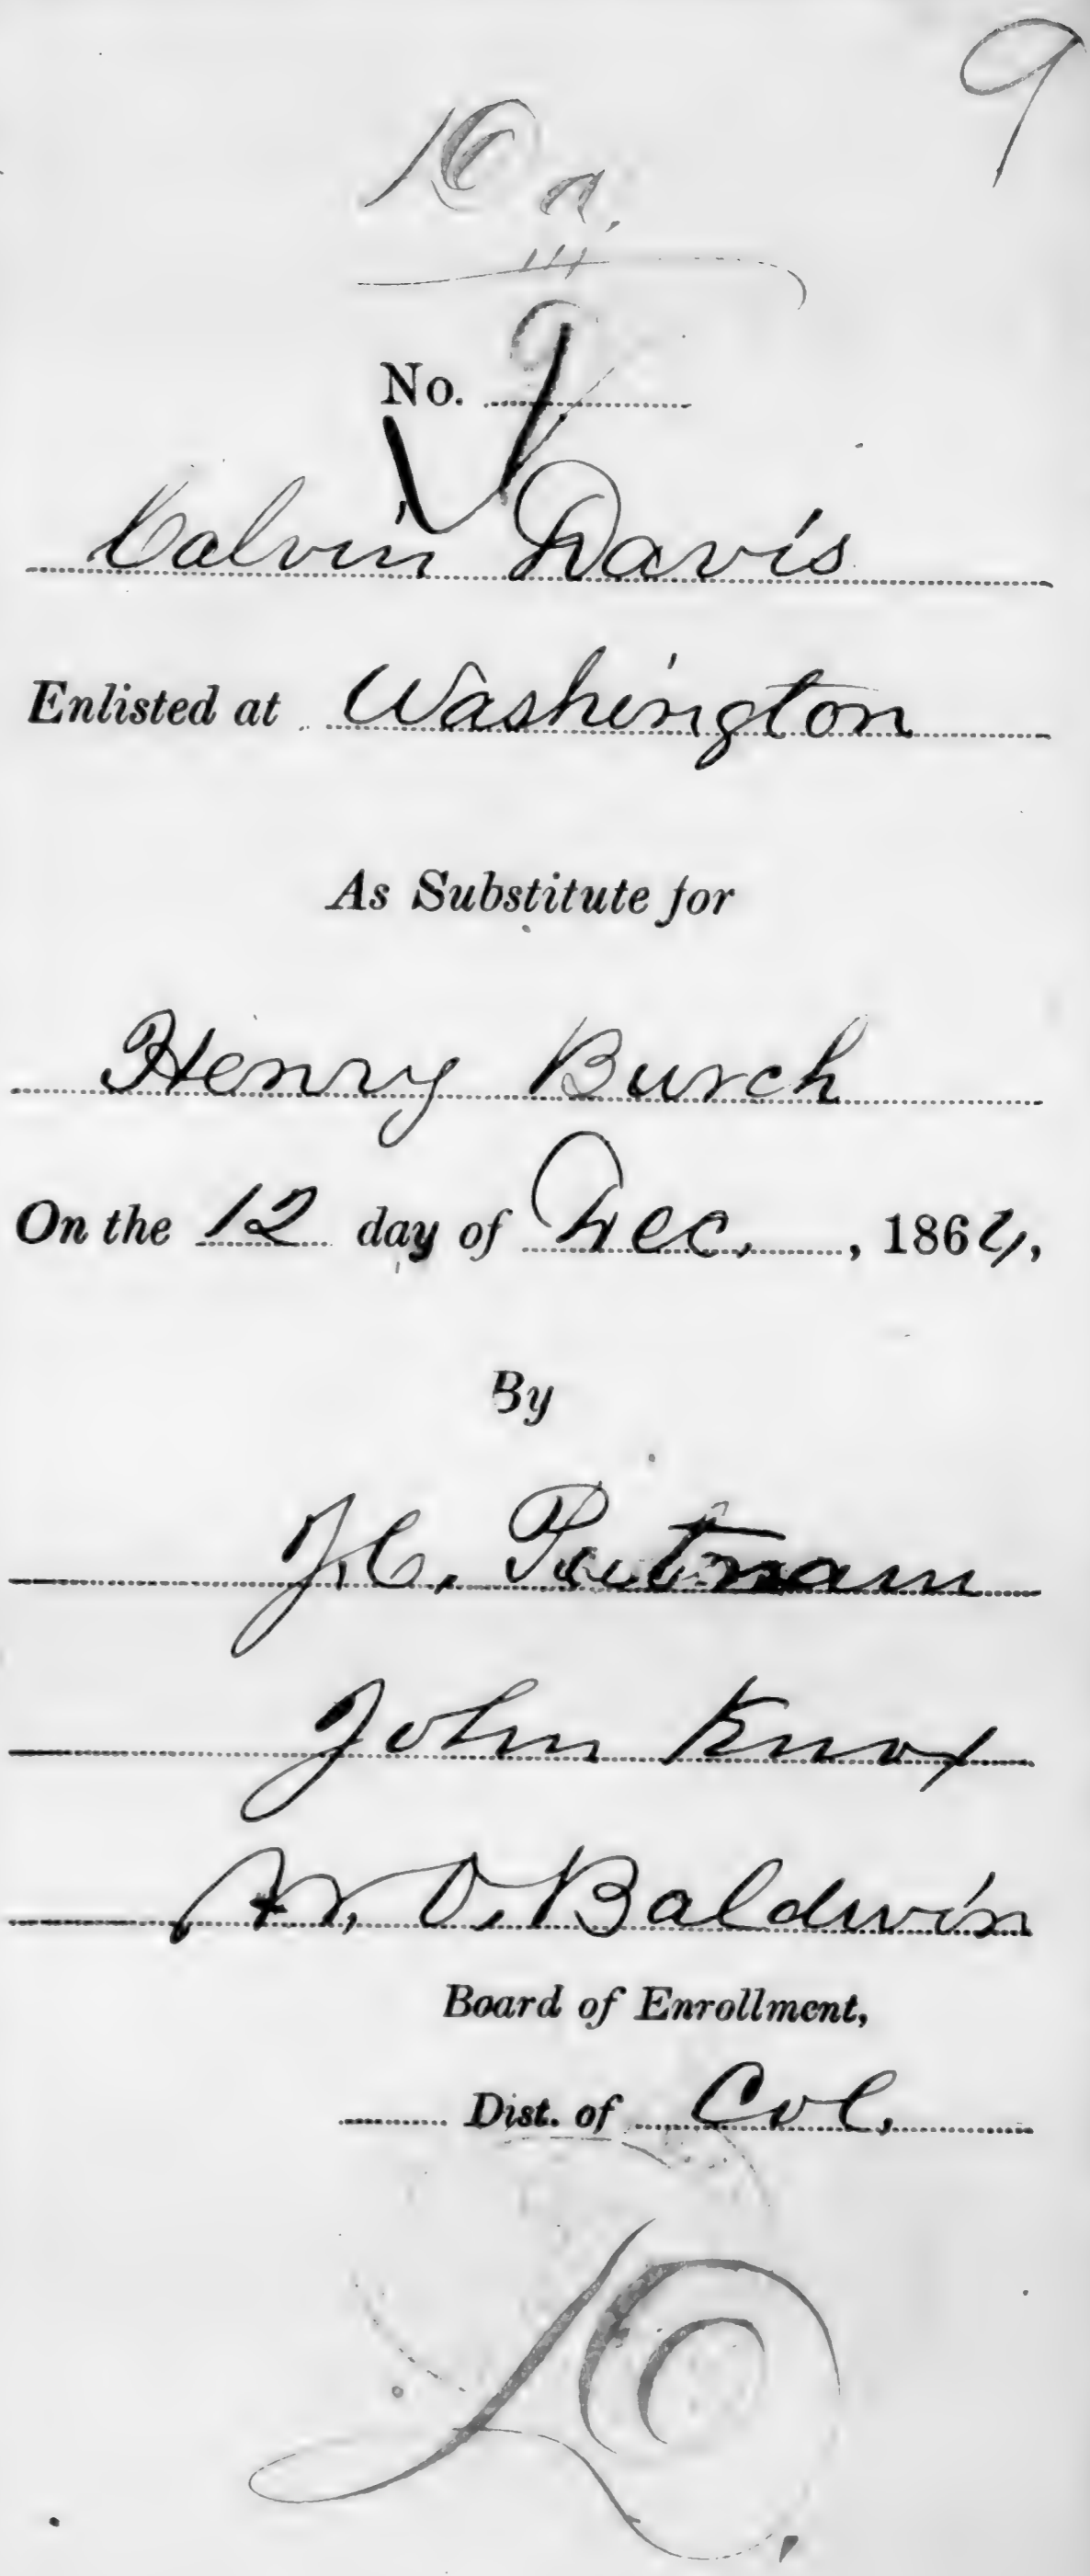 9
No.
Calvin Davis
Enlisted at Washington
As Substitute for
Henry Burch
On the 12 day of Dec., 1864,
By
J.C. Putnam
John Knox
O. Baldwin
Board of Enrollment,
Dist. of Col.